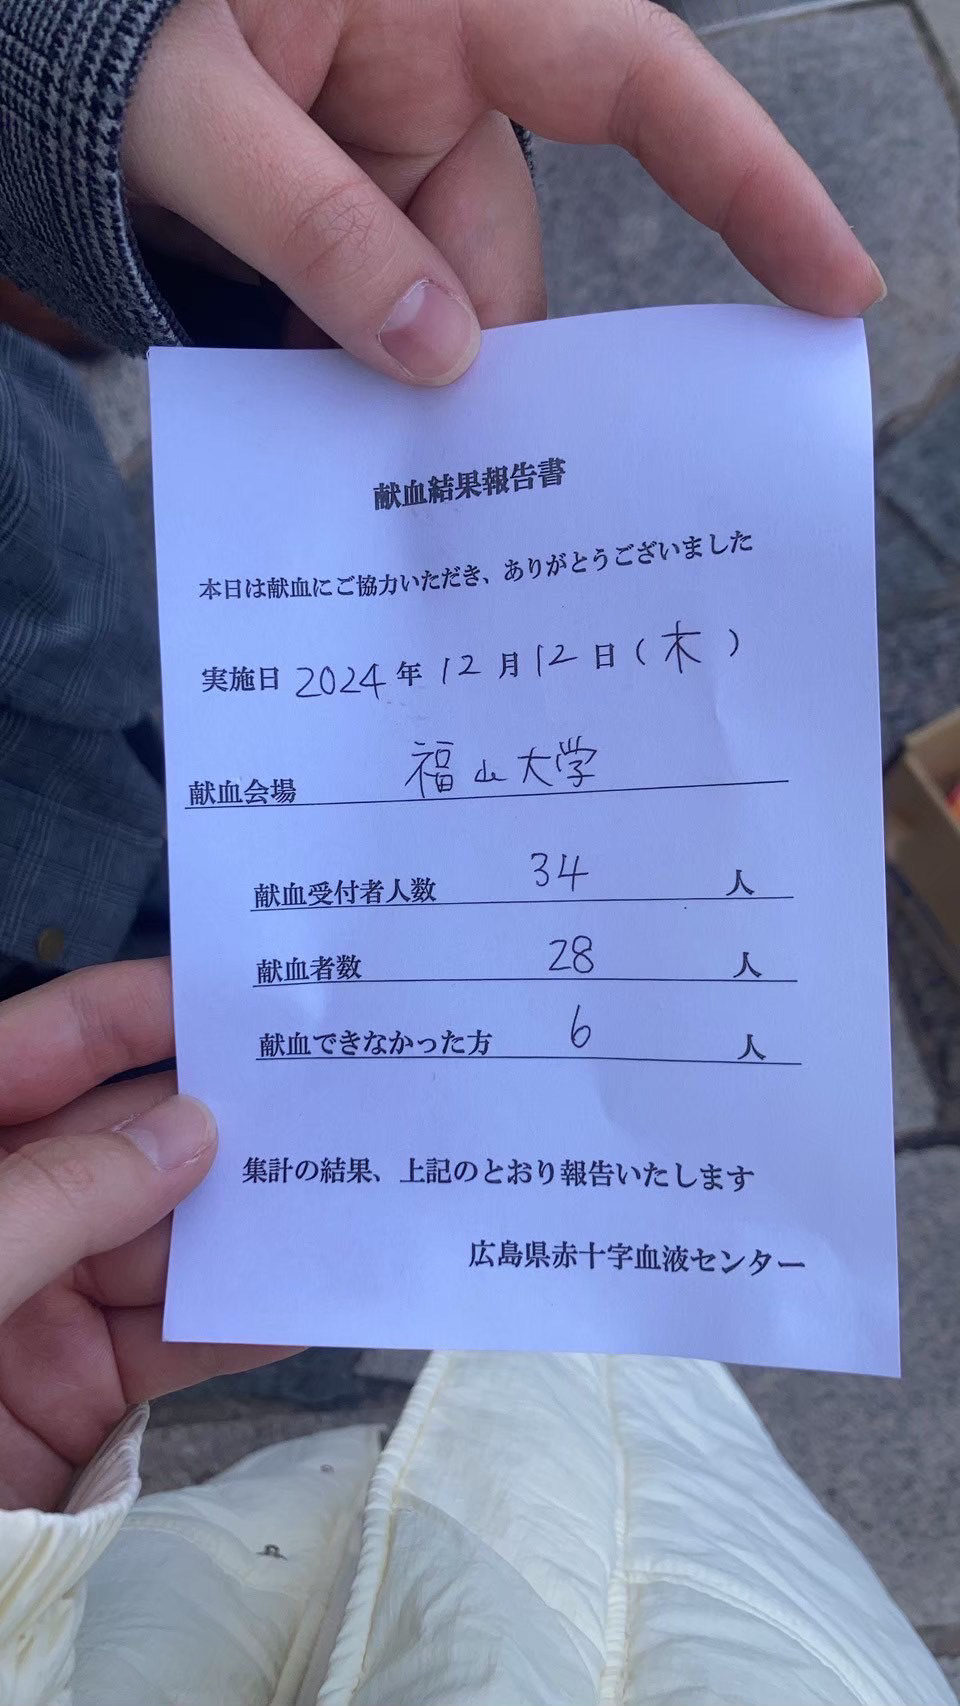 献血結果報告書
本日は献血にご協力いただき、ありがとうございました
実施日 2024年12月12日(木)
献血会場 福山大学
献血受付者人数 34 人
献血者数 28 人
献血できなかった方 6 人
集計の結果、上記のとおり報告いたします
広島県赤十字血液センター